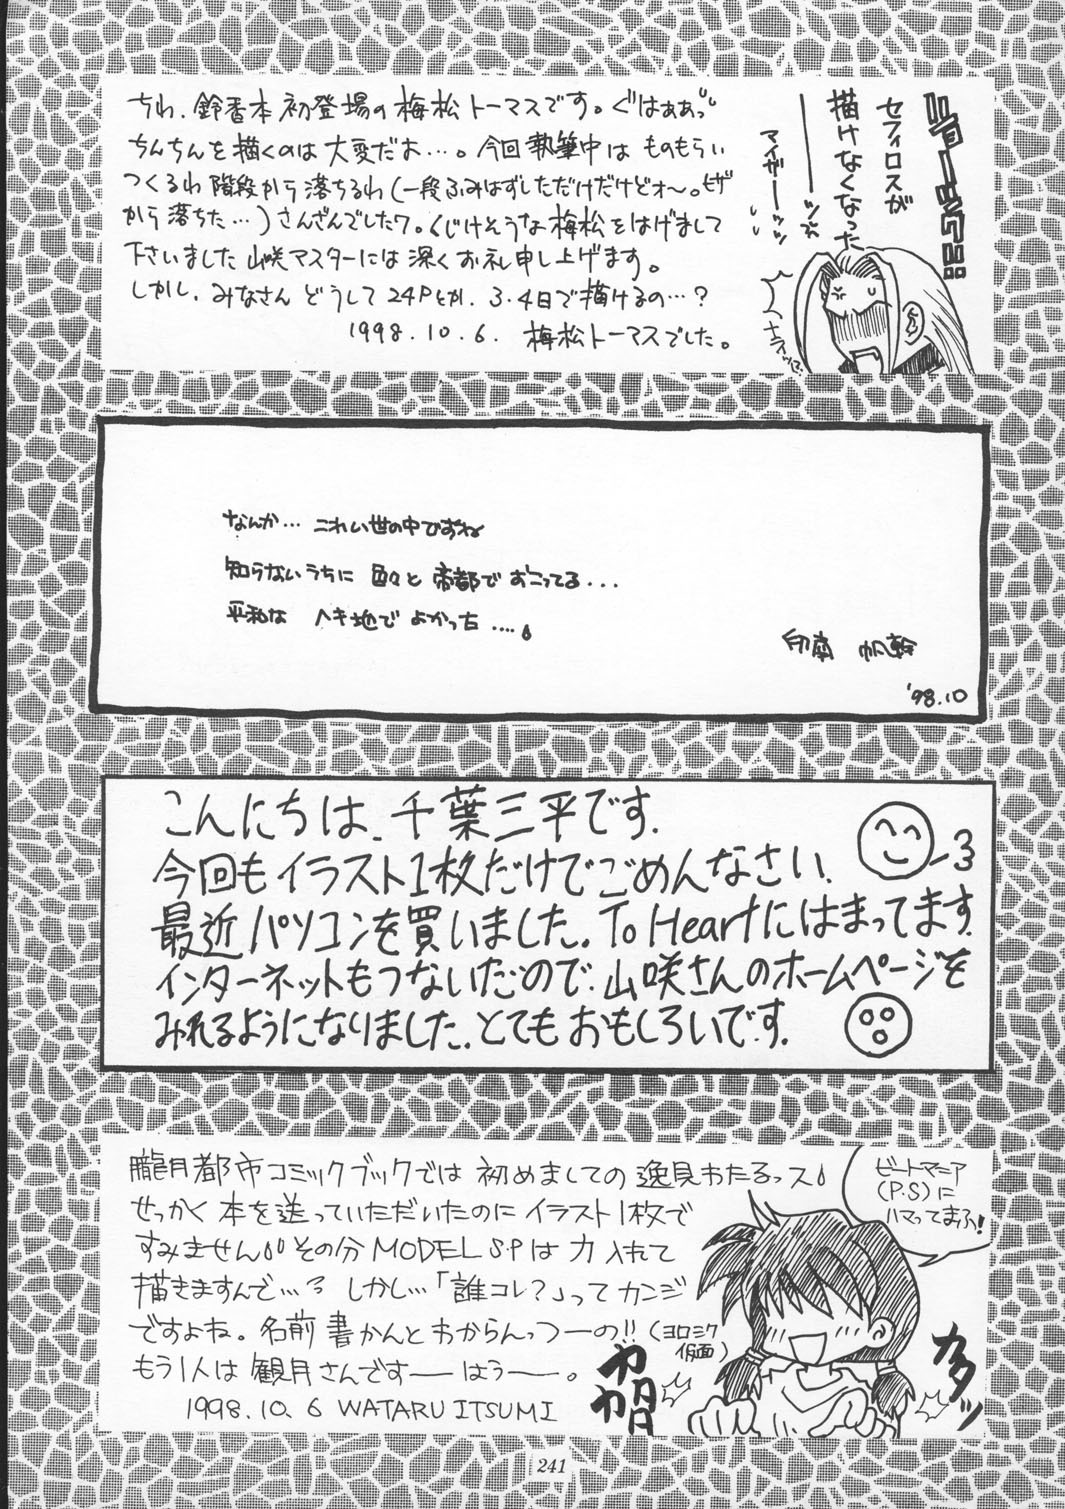 ちわ、鈴香本初登場の梅松トーマスです。ぐはぁぁっ
ちんちんを描くのは大変だお…。今回執筆中はものもらい
つくるわ階段から落ちるわ(一段ふみはずしただけだけどォ〜。ヒザ
から落ちた…)さんざんでしたワ。くじけそうな梅松をはげまして
下さいました山咲マスターには深くお礼申し上げます。
しかし、みなさんどうして24Pとか、3・4日で描けるの…?
1998.10.6. 梅松トーマスでした。
セフィロスが
描けなくなった
ーーーッッ
マイザーーッッ
なんか… こわい世の中ですね
知らないうちに 色々と 帝都で おこってる...
平和な ヘキ地で よかった ....
印南 帆幹
'98.10
こんにちは、千葉三平です.
今回もイラスト1枚だけでごめんなさい.
最近パソコンを買いました。To Heartにはまってます.
インターネットもつないだので、山咲さんのホームページを
みれるようになりました.とてもおもしろいです.
朧月都市コミックブックでは 初めましての 逸見わたるっス!
せっかく本を送っていただいたのにイラスト1枚で
すみません!!その分 MODEL S.P は力入れて
描きますんで…? しかし…「誰コレ?」ってカンジ
ですよね。名前書かんとわからんっつーの!!(ヨロシク仮面)
もう1人は 観月さんですー はうー。
1998.10.6 WATARU ITSUMI
ビートマニア
(P.S)に
ハマってまふ!
カタッ
カカカカ
241